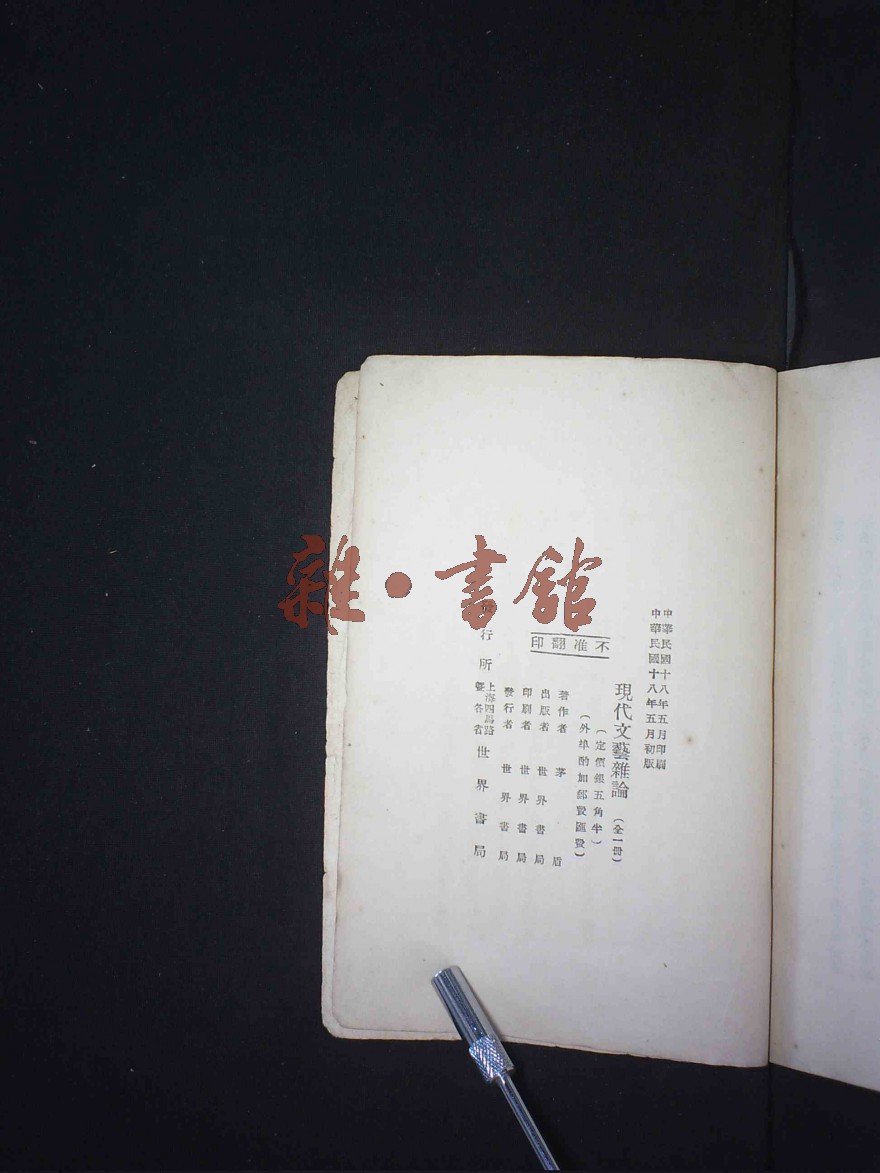 中華民國十八年五月印刷
中華民國十八年五月初版
現代文藝雜論（全一冊）
（定價銀五角半）
（外埠酌加郵費匯費）
不准翻印
著作者 茅盾
出版者 世界書局
印刷者 世界書局
發行者 世界書局
發行所 上海四馬路暨各省 世界書局
雜·書館